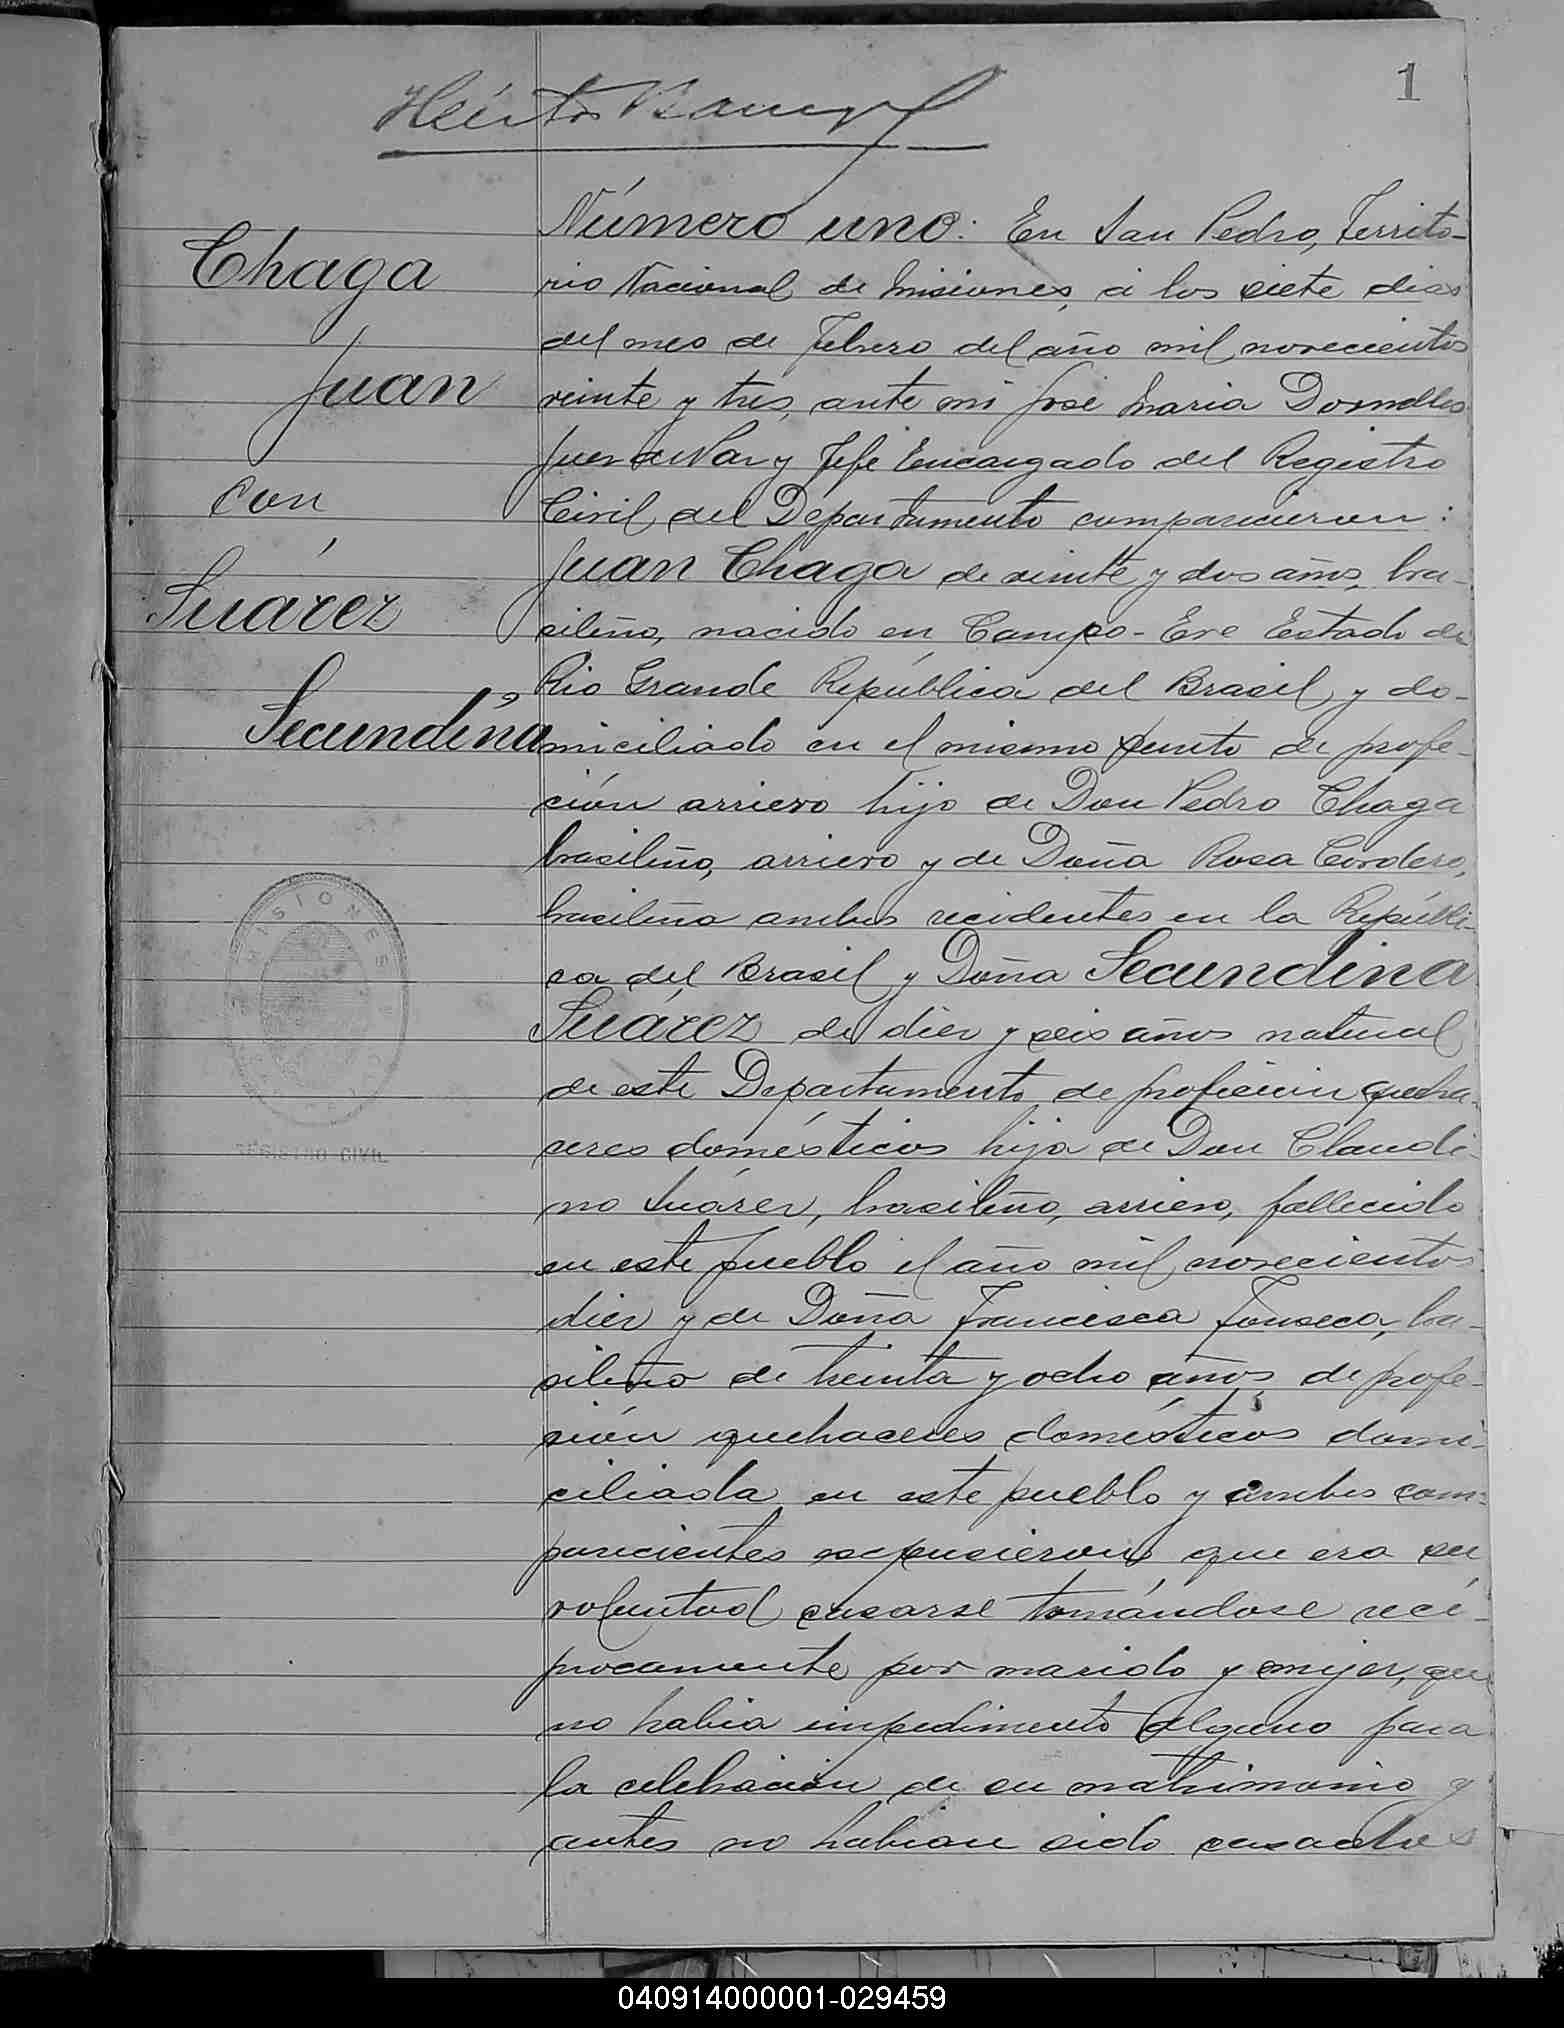 1
Número uno: En San Pedro, Territo-
Chaga
rio Nacional de Misiones, á los siete dias
del mes de Febrero del año mil novecientos
Juan
veinte y tres, ante mi José Maria Dornelles
Juez de Paz y Jefe Encargado del Registro
con
Civil del Departamento comparecieron:
Juan Chaga de veinte y dos años, bra-
Suárez
sileño, nacido en Campo-Ere Estado de
Rio Grande República del Brasil y do-
Secundina
miciliado en el mismo punto de profe-
ción arriero hijo de Don Pedro Chaga
brasileño, arriero y de Doña Rosa Cordero,
brasileña ambos recidentes en la Repúbli-
ca del Brasil y Doña Secundina
Suárez de diez y seis años natural
de este Departamento de profesion queha-
ceres domésticos hija de Don Claudi-
no Suárez, brasileño, arriero, fallecido
en este pueblo el año mil novecientos
diez y de Doña Francisca Fonseca, bra-
sileña de treinta y ocho años, de profe-
sión quehaceres domésticos domi-
ciliada en este pueblo y ambos com-
parecientes expusieron que era su
voluntad casarse tomándose recí-
procamente por marido y mujer, que
no habia impedimento alguno para
la celebración de su matrimonio y
antes no habian sido casados
MISIONES
REGISTRO CIVIL
040914000001-029459